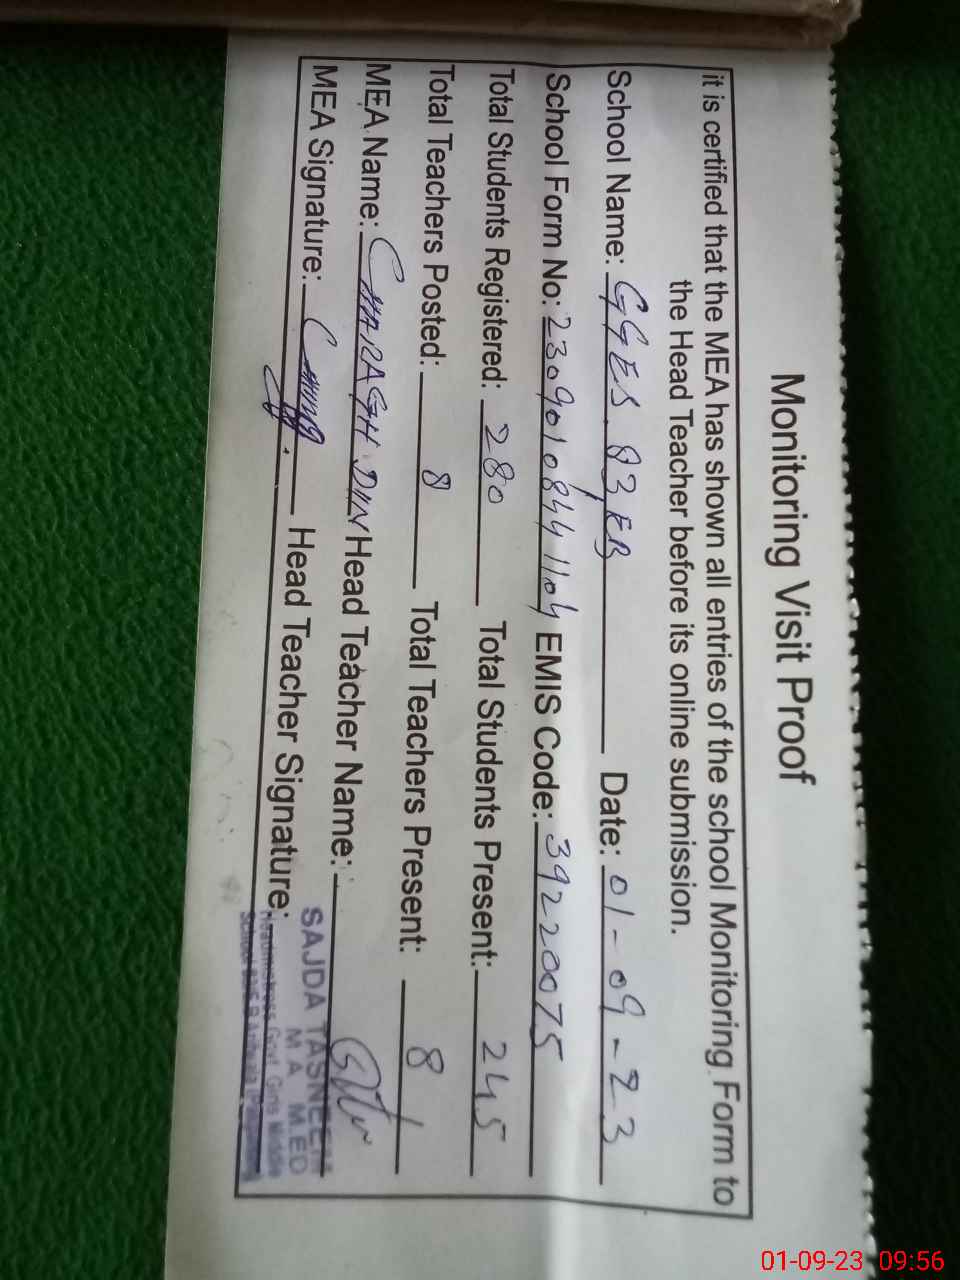 Monitoring Visit Proof
it is certified that the MEA has shown all entries of the school Monitoring Form to
the Head Teacher before its online submission.
School Name: GGES 83/EB Date: 01-09-23
School Form No: 23090108441104 EMIS Code: 39220075
Total Students Registered: 280 Total Students Present: 245
Total Teachers Posted: 8 Total Teachers Present: 8
MEA Name: CHARAGH DIN Head Teacher Name:
MEA Signature: Head Teacher Signature:
SAJDA TASNEEM
M A M.ED
Headmistress Govt. Girls Middle
School
01-09-23 09:56